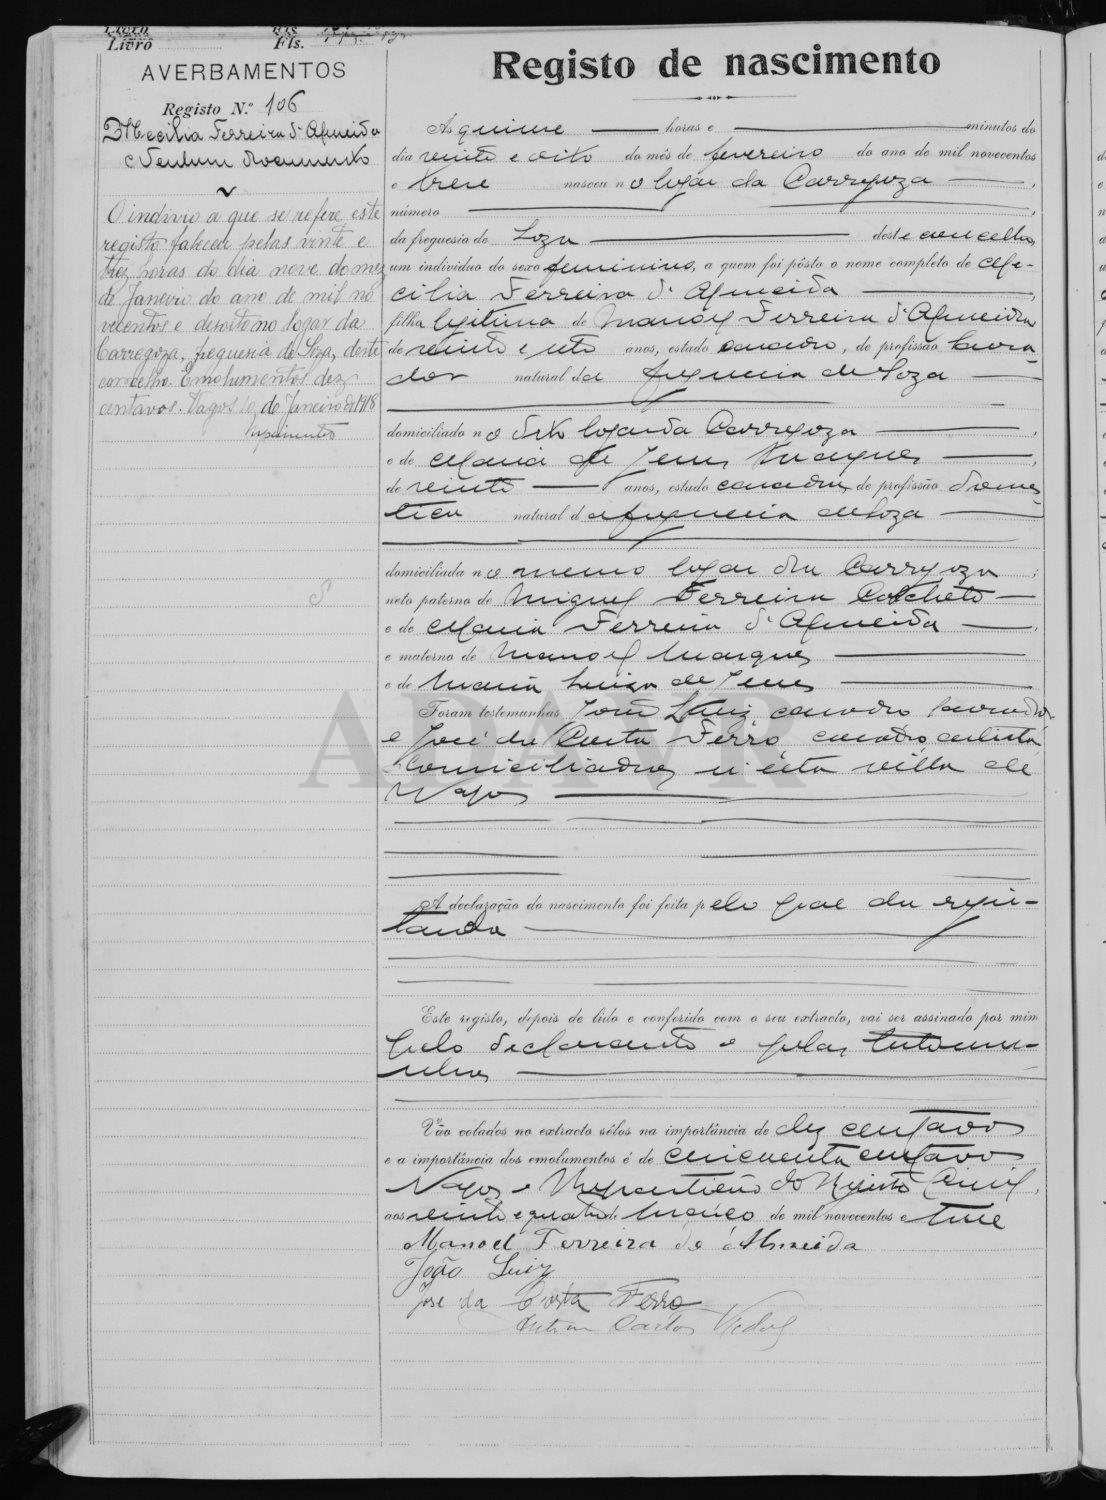 Livro Fls.
Livro Fls.
AVERBAMENTOS
Registo N.º 106
Cecilia Ferreira d'Almeida
e Nenhum documento
O indivio a que se refere este
registo faleceu pelas vinte e
trez horas do dia nove do mez
de Janeiro do ano de mil no
vecentos e desoito no logar da
Carregoza, freguesia de Soza, deste
concelho. Emolumentos dez
centavos. Vagos 10 de Janeiro de 1918
Registo de nascimento
As quinze horas e minutos do
dia vinte e oito do mês de fevereiro do ano de mil novecentos
e treze nasceu no logar da Carregoza,
número
da freguesia de Soza deste concelho,
um individuo do sexo feminino, a quem foi pôsto o nome completo de
cilia Ferreira d'Almeida
filha legitima de Manoel Ferreira d'Almeida
de vinte e sete anos, estado casado, de profissão lavra-
dor natural da freguesia de Soza
domiciliado no dito logar da Carregoza,
e de Maria de Jesus Marques,
de vinte anos, estado casada, de profissão domes-
tica natural da freguesia de Soza
domiciliada no mesmo logar da Carregoza;
neto paterno de Miguel Ferreira Colcheto
e de Maria Ferreira d'Almeida,
e materno de Manoel Marques
e de Maria Luiza de Jesus
Foram testemunhas João Luiz, casado, lavrador
e José da Costa Ferro, casado, artista
domiciliados n'esta villa de
Vagos
ADAVR
A declaração do nascimento foi feita pelo pae da regis-
tanda
Este registo, depois de lido e conferido com o seu extracto, vai ser assinado por mim
pelo declarante e pelas testemu-
nhas
Vão colados no extracto sêlos na importância de dez centavos
e a importância dos emolumentos é de cincuenta centavos
Vagos e Repartição do Registo Civil,
aos vinte e quatro de Março de mil novecentos e treze
Manoel Ferreira de Almeida
João Luiz
Jose da Costa Ferro
Carlos Vidal